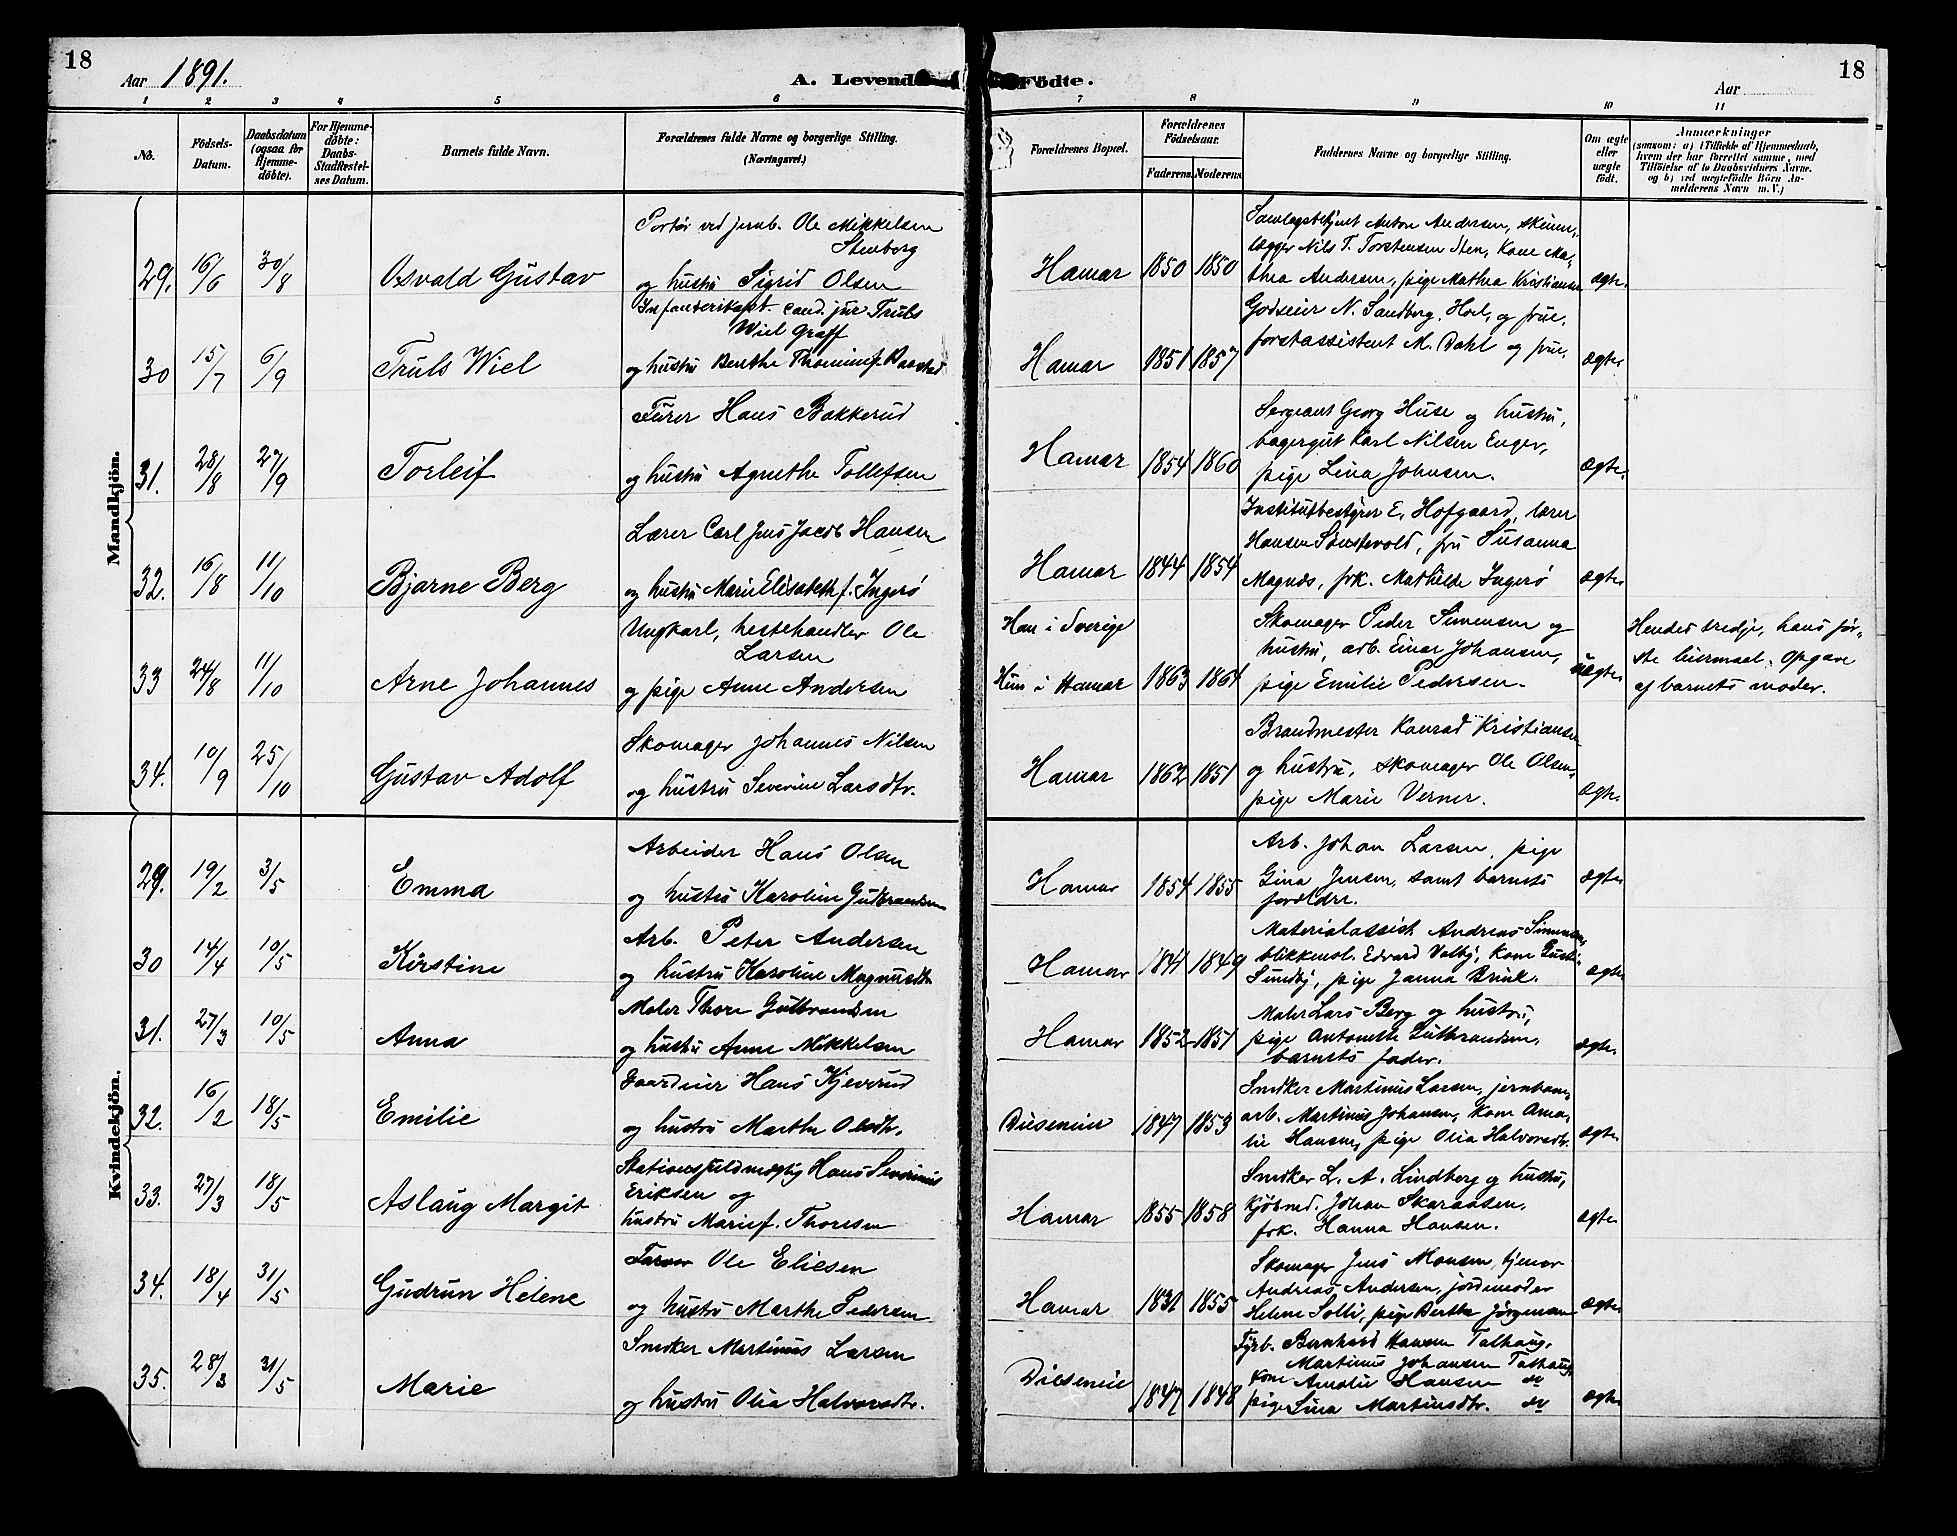 18
Aar 1891.
A. Levend
Födte.
Aar
18
1 2 3 4 5 6 7 8 9 10 11
No.
Födsels-Datum.
Daabsdatum (ogsaa for Hjemme-döbte).
For Hjemme-döbte: Daabs-Stadfæstel-ses Datum.
Barnets fulde Navn.
Forældrenes fulde Navne og borgerlige Stilling.
(Næringsvei.)
Forældrenes Bopæl.
Forældrenes Födselsaar.
Faderens. Moderens.
Faddernes Navne og borgerlige Stilling.
Om ægte eller uægte født.
Anmærkninger
(saasom: a) i Tilfælde af Hjemmedaab,
hvem der har forrettet samme, med
Tilföielse af to Daabsvidners Navne.
og b) ved uægtefödte Börn An-
melderens Navn m. V.)
Mandkjön.
Portør ved jernb. Ole Mikkelsen
Stenberg
29. 16/6 30/8 Osvald Gustav og hustru Sigrid Olsen Hamar 1850 1850
Anton Andersen,
Nils T. Torstensen Sten, Kone Ma-
thea Andersen, pige Mathea Kristiansen ægte.
cand. jur Truls
Wiel Graff
30 15/7 6/9 Truls Wiel og hustru Berthe Hamar 1851 1857
Godseier N. Sandberg, Hoel, og frue,
forstassistent M. Dahl og frue. ægte.
Furer Hans Bakkerud
31. 28/8 27/9 Torleif og hustru Agnethe Tollefsen Hamar 1854 1860
Sergeant Georg Huse og hustru,
bagergut Karl Nilsen Enger,
pige Lina Johnsen. ægte.
Lærer Carl Jens Jacob Hansen
32. 16/8 11/10 Bjarne Berg og hustru Marie Elisabeth f. Ingerø Hamar 1844 1854
Institutbestyrer E. Hofgaard, lærer
Hansen Sønstevold, fru Susanna
Magnæs, frk. Mathilde Ingerø ægte
Ungkarl, hestehandler Ole
Larsen
33 24/8 11/10 Arne Johannes og pige Anne Andersen
Han i Sverige
Hun i Hamar 1863 1864
Skomager Peder Simensen og
hustru, arb. Einar Johansen,
pige Emilie Pedersen. uægte.
Hendes tredje, hans før-
ste leiermaal. Opgave
af barnets moder.
Skomager Johannes Nilsen
34. 10/9 25/10 Gustav Adolf og hustru Severine Larsdtr. Hamar 1862 1851
Brandmester Konrad Kristiansen
og hustru, skomager Ole Olsen,
pige Marie Verner. ægte.
Kvindekjön.
Arbeider Hans Olsen
29. 19/2 3/5 Emma og hustru Karoline Gudbrandsen Hamar 1854 1855
Arb. Johan Larsen, pige
Gina Jensen, samt barnets
forældre. ægte
Arb. Peter Andersen
30 14/4 10/5 Kirstine og hustru Karoline Magnusdtr Hamar 1849
Materialassist. Andreas Simensen,
blikkensl. Edvard Valby, Kone
Sundby, pige Janna ægte
Maler Thore Gulbrandsen
31. 27/3 10/5 Anna og hustru Anne Mikkelsen Hamar 1852 1851
Maler Lars Berg og hustru,
pige Antonette Gulbrandsen,
barnets fader. ægte.
Gaardeier Hans Kjeverud
32. 16/2 18/5 Emilie og hustru Marthe Olsdtr. Diseneie 1847 1853
Snedker Martinus Larsen, jernbane-
arb. Martinus Johansen, Kone Ama-
lie Hansen, pige Olia Halvorsdtr. ægte
Stationsfuldmægtig Hans Severinus
Eriksen og
33. 27/3 18/5 Aslaug Margit hustru Marie f. Thoresen Hamar 1855 1858
Snedker L. A. Lindberg og hustru,
Kjøbmd. Johan Skaraasen,
frk. Hanna Hansen. ægte
Farver Ole Eliesen
34. 18/4 31/5 Gudrun Helene og hustru Marthe Pedersen Hamar 1855
Skomager Jens Monsen, tjener
Andreas Andersen, jordemoder
Helene Solli, pige Berthe Jørgensen ægte
Snedker Martinus Larsen
35. 28/3 31/5 Marie og hustru Olia Halvorsdtr. Diseneie 1847 1848
Fyrb. Bernhard Hansen Tolhaug,
Martinus Johansen Tolhaug,
Kone Amalie Hansen
pige Lina Martinsdtr. ægte